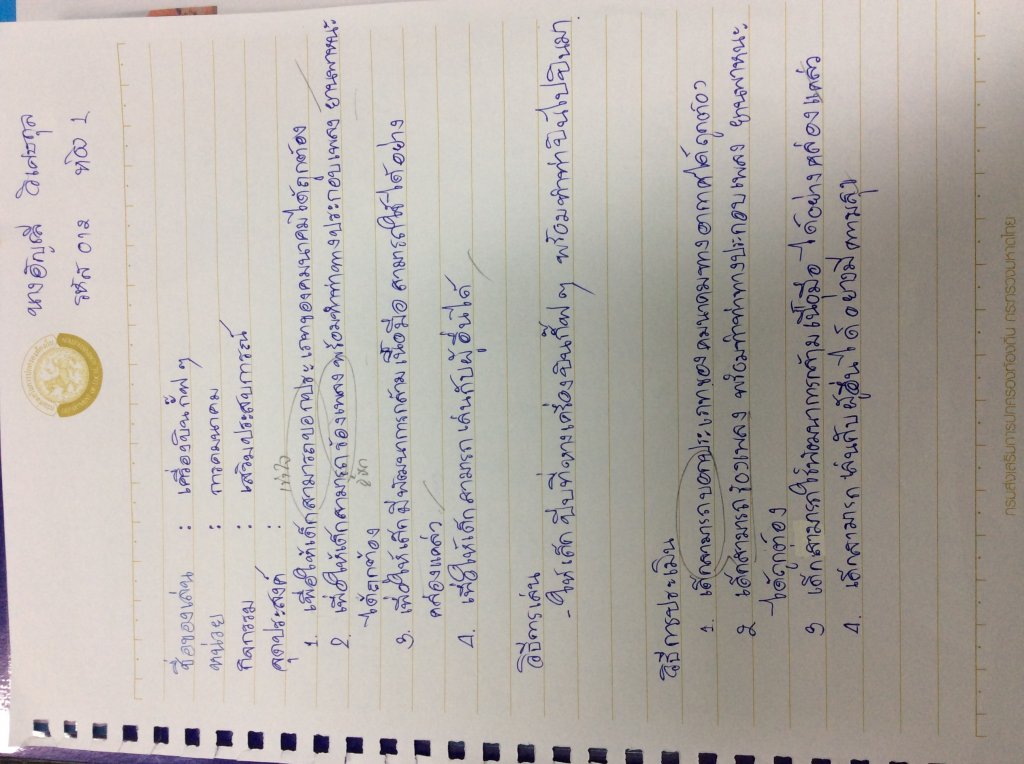 นางธัญณี วิเศษกุล
รหัส 012 ห้อง 1
ชื่อของเล่น : เครื่องบินกัฟๆ
หน่วย : การคมนาคม
กิจกรรม : เสริมประสบการณ์
จุดประสงค์ :
เข้าใจ
1. เพื่อให้เด็กสามารถบอกประเภทของคมนาคมได้ถูกต้อง
2. เพื่อให้เด็กสามารถร้องเพลง พร้อมทำท่าทางประกอบเพลง ยานพาหนะ
ได้ถูกต้อง
3. เพื่อให้เด็กมีพัฒนาการกล้ามเนื้อมือ สามารถใช้ได้อย่าง
คล่องแคล่ว
4. เพื่อให้เด็กสามารถเล่นกับผู้อื่นได้
วิธีการเล่น
- ให้เด็กบีบที่หางเครื่องบินกั๊ฟๆ พร้อมทำท่าบินไปบินมา
วิธีการประเมิน
1. เด็กสามารถบอกประเภทของคมนาคมทางอากาศได้ถูกต้อง
2 เด็กสามารถร้องเพลง พร้อมทำท่าทางประกอบเพลง ยานพาหนะ
ได้ถูกต้อง
3 เด็กสามารถใช้พัฒนาการกล้ามเนื้อมือได้อย่างคล่องแคล่ว
4. เด็กสามารถเล่นกับผู้อื่นได้อย่างมีความสุข
กรมส่งเสริมการปกครองท้องถิ่น กระทรวงมหาดไทย